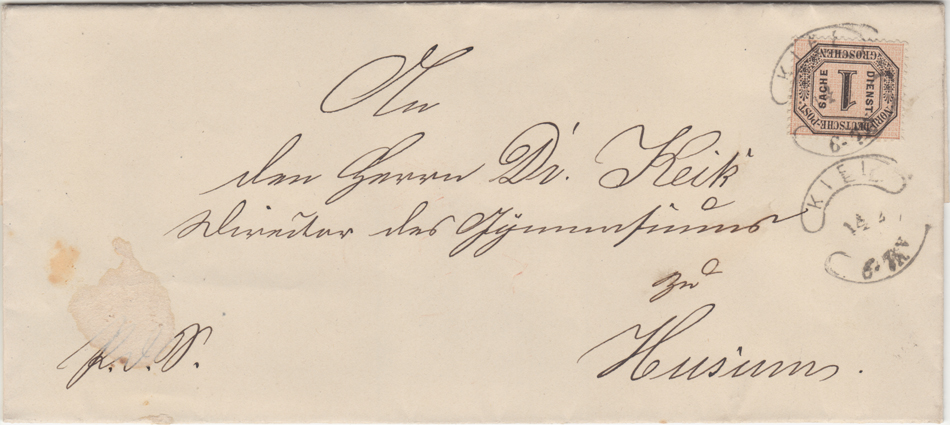 An
den Herrn Dr. Keck
Director des Gymnasiums
zu
Husum.
P. d. S.
KIEL
GROSCHEN
DIENST-
1
SACHE
NORDDEUTSCHE-POST
6-7N
KIEL
14
6-7N